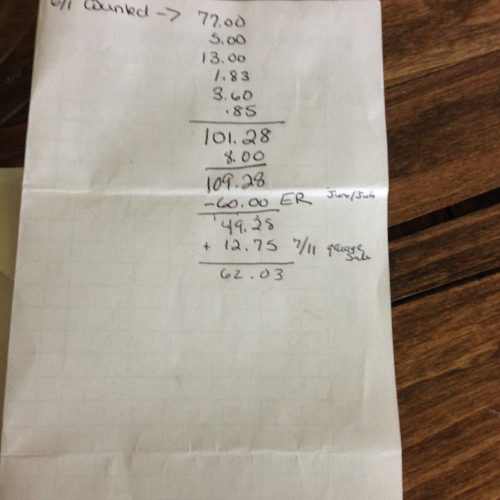 6/1 Counted -> 77.00
5.00
13.00
1.83
3.60
.85
101.28
8.00
109.28
-60.00 ER June/July
49.28
+ 12.75 7/11 garage Sale
62.03